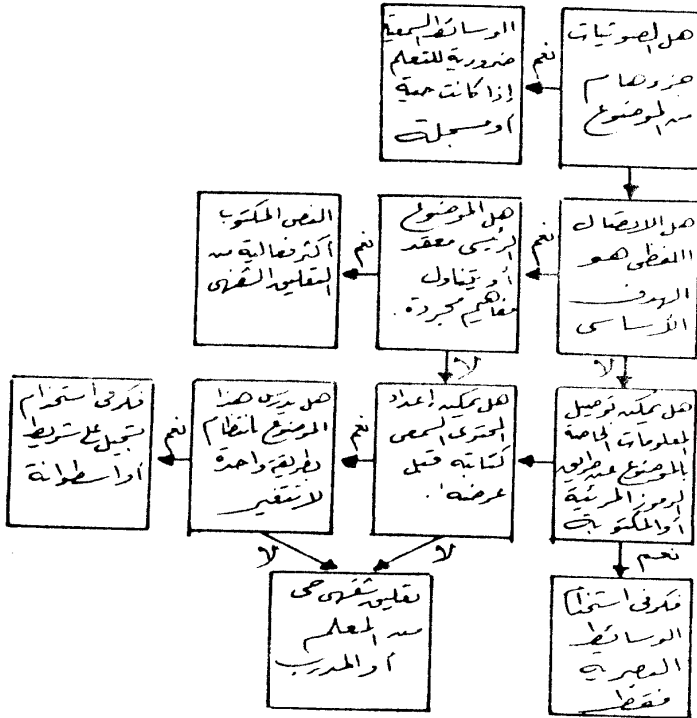 هل الصوتيات
جزء هام
من الموضوع
نعم
الوسائط السمعية
ضرورية للتعلم
إذا كانت حية
أو مسجلة
هل الاتصال
اللفظى هو
الهدف
الأساسى
نعم
هل الموضوع
الرئيسى معقد
أو يتناول
مفاهيم مجردة.
نعم
النص المكتوب
أكثر فعالية من
التعليق الشفهى
لا
لا
هل يمكن توصيل
المعلومات الخاصة
بالموضوع عن طريق
الرموز المرئية
أو المكتوبة
هل يمكن إعداد
المحتوى السمعى
كتابته قبل
عرضه
نعم
هل يدرس هذا
الموضوع بانتظام
بطريقة واحدة
لا تتغير
نعم
فكر فى استخدام
تسجيل على شريط
أو اسطوانة
نعم
لا
لا
فكر فى استخدام
الوسائط
البصرية
فقط
تعليق شفهى حى
من المعلم
أو المدرب